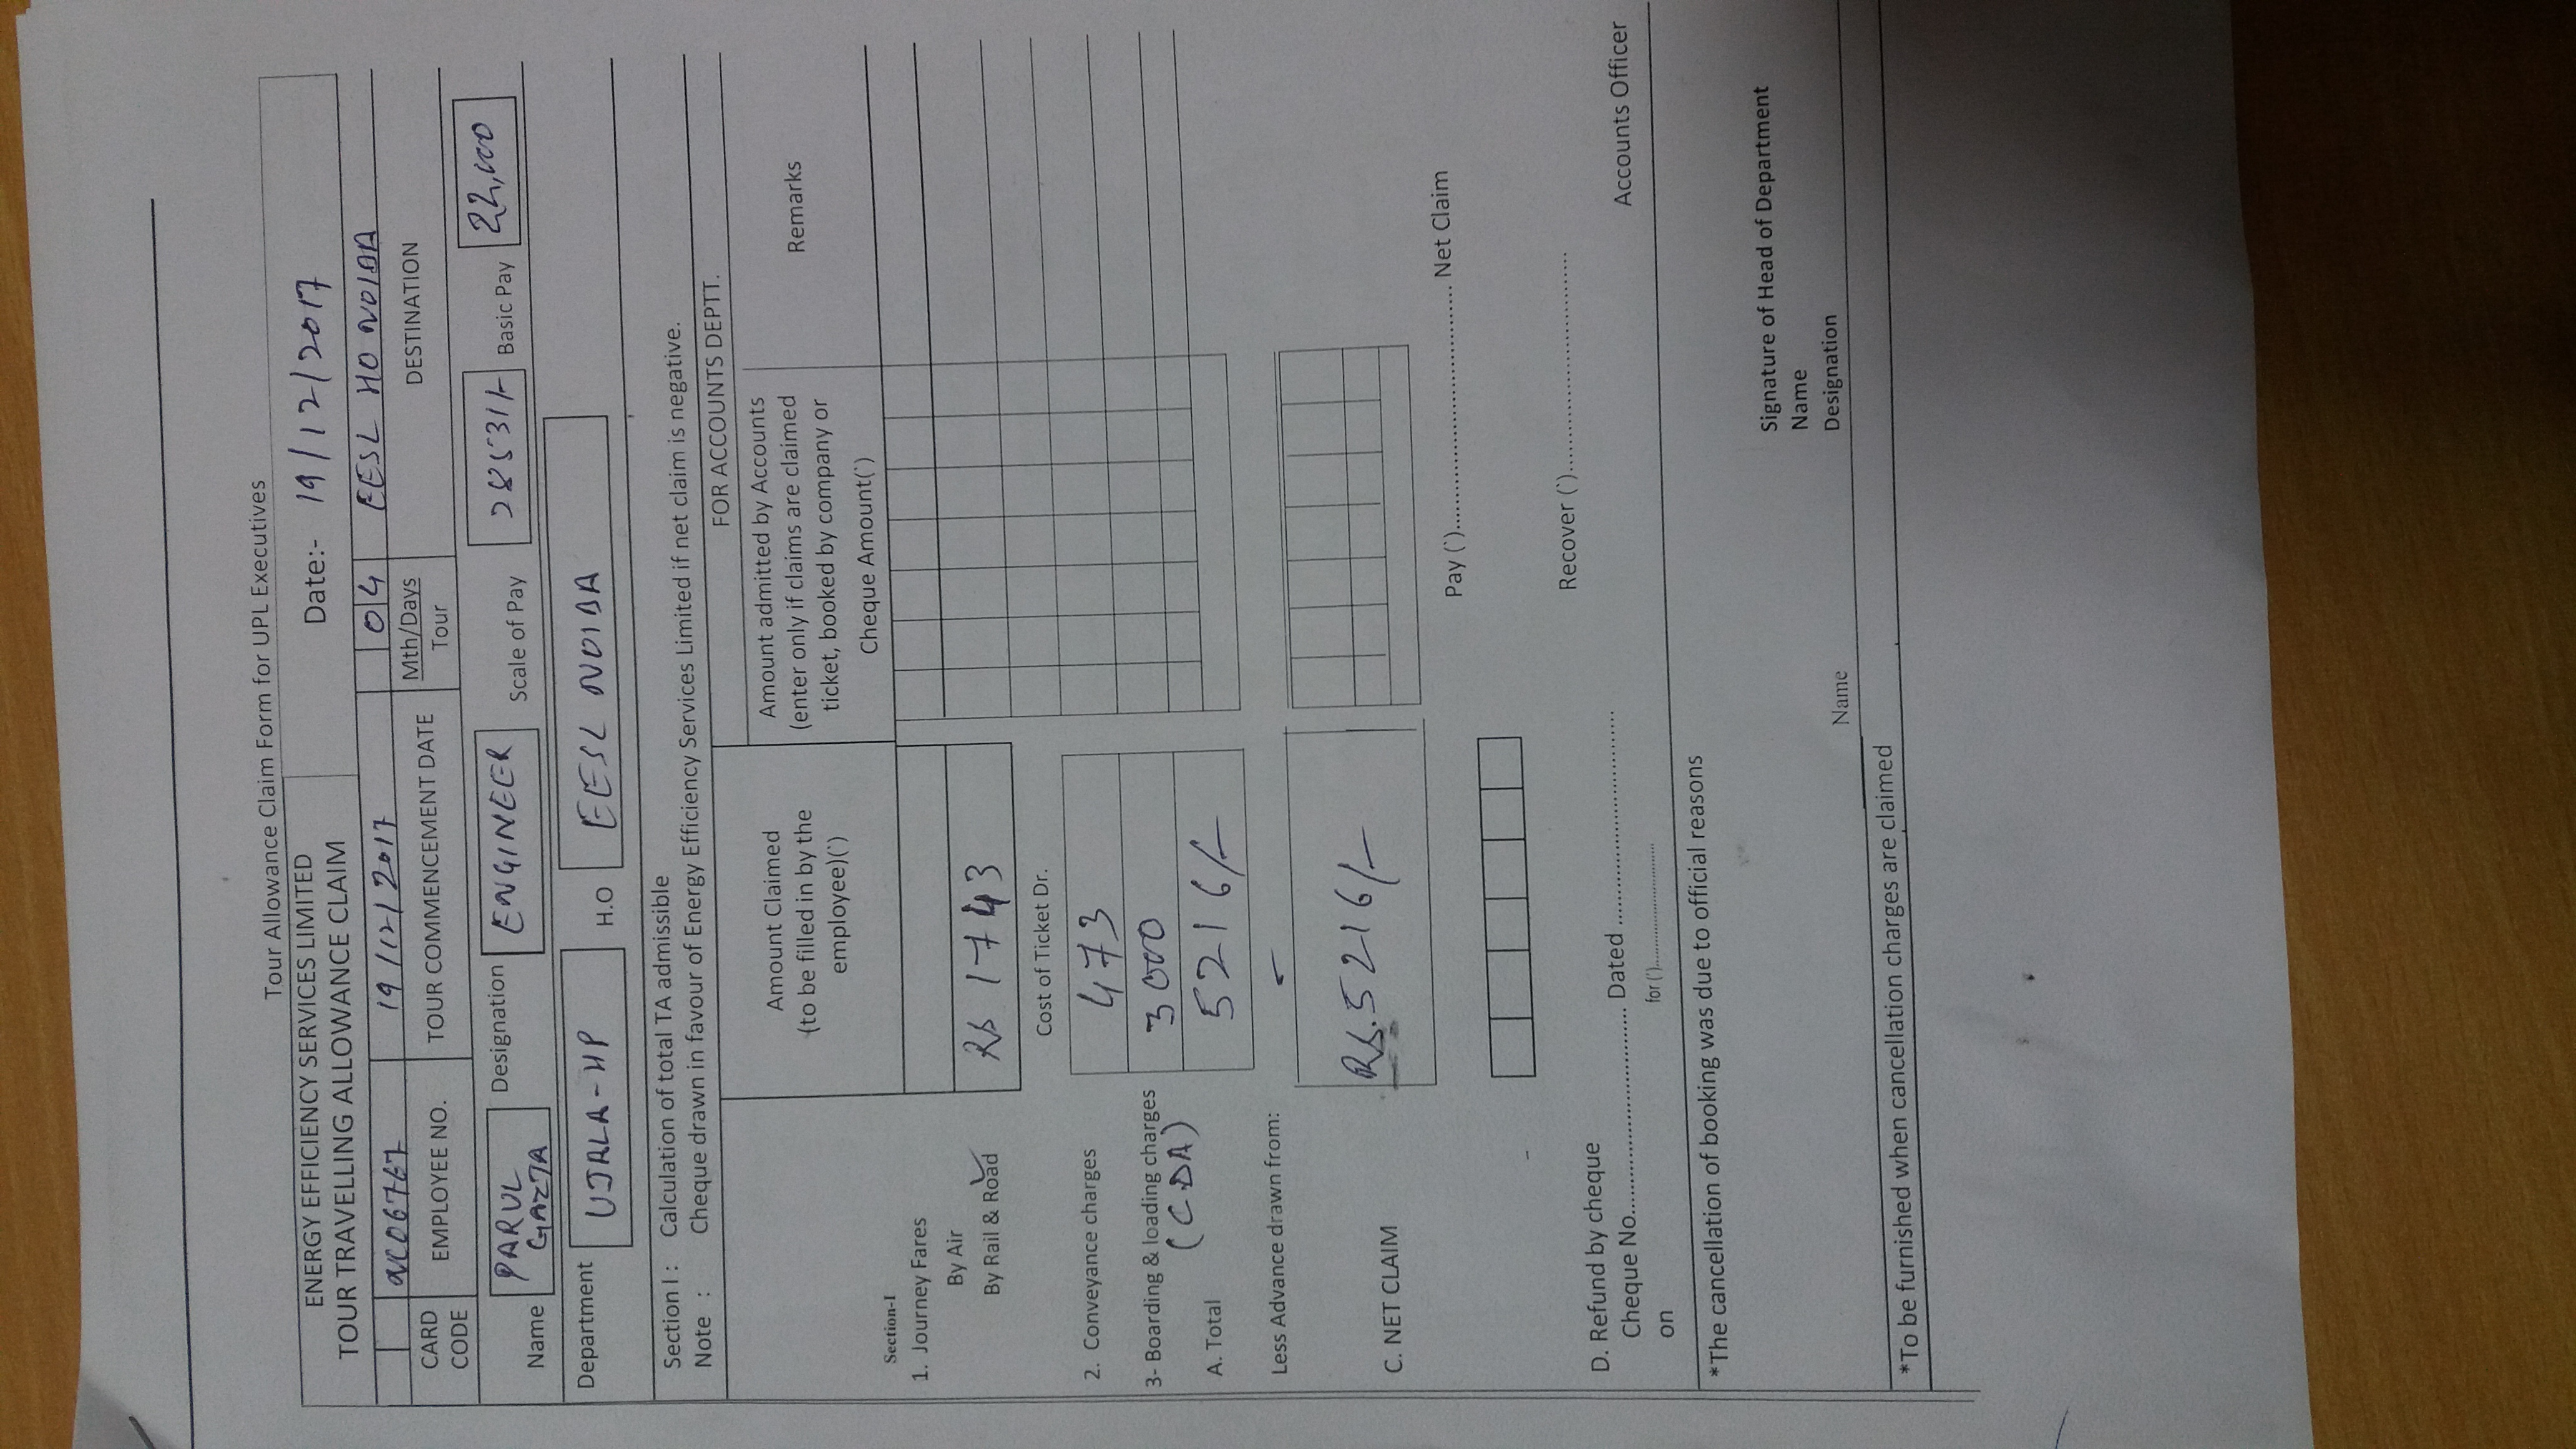 Tour Allowance Claim Form for UPL Executives
ENERGY EFFICIENCY SERVICES LIMITED
TOUR TRAVELLING ALLOWANCE CLAIM
Date:- 19/12/2017
19/12/2017 04 EESL HO NOIDA
CARD CODE EMPLOYEE NO. TOUR COMMENCEMENT DATE Mth/Days Tour DESTINATION
Name PARUL GAZTA Designation ENGINEER Scale of Pay 28531/- Basic Pay 22,000
Department UJALA-HP H.O EESL NOIDA
Section I : Calculation of total TA admissible
Note : Cheque drawn in favour of Energy Efficiency Services Limited if net claim is negative.
FOR ACCOUNTS DEPTT.
Amount Claimed
(to be filled in by the
employee)(`)
Amount admitted by Accounts
(enter only if claims are claimed
ticket, booked by company or
Cheque Amount(`)
Remarks
Section-I
1. Journey Fares
By Air
By Rail & Road Rs 1743
Cost of Ticket Dr.
2. Conveyance charges 473
3- Boarding & loading charges 3000
(CDA)
A. Total 5216/-
Less Advance drawn from: -
C. NET CLAIM Rs. 5216/-
Pay (`)..................................... Net Claim
Recover (`)..................................
D. Refund by cheque
Cheque No................................ Dated .................................
on for (`)...............................
Accounts Officer
*The cancellation of booking was due to official reasons
Signature of Head of Department
Name
Designation
Name
*To be furnished when cancellation charges are claimed